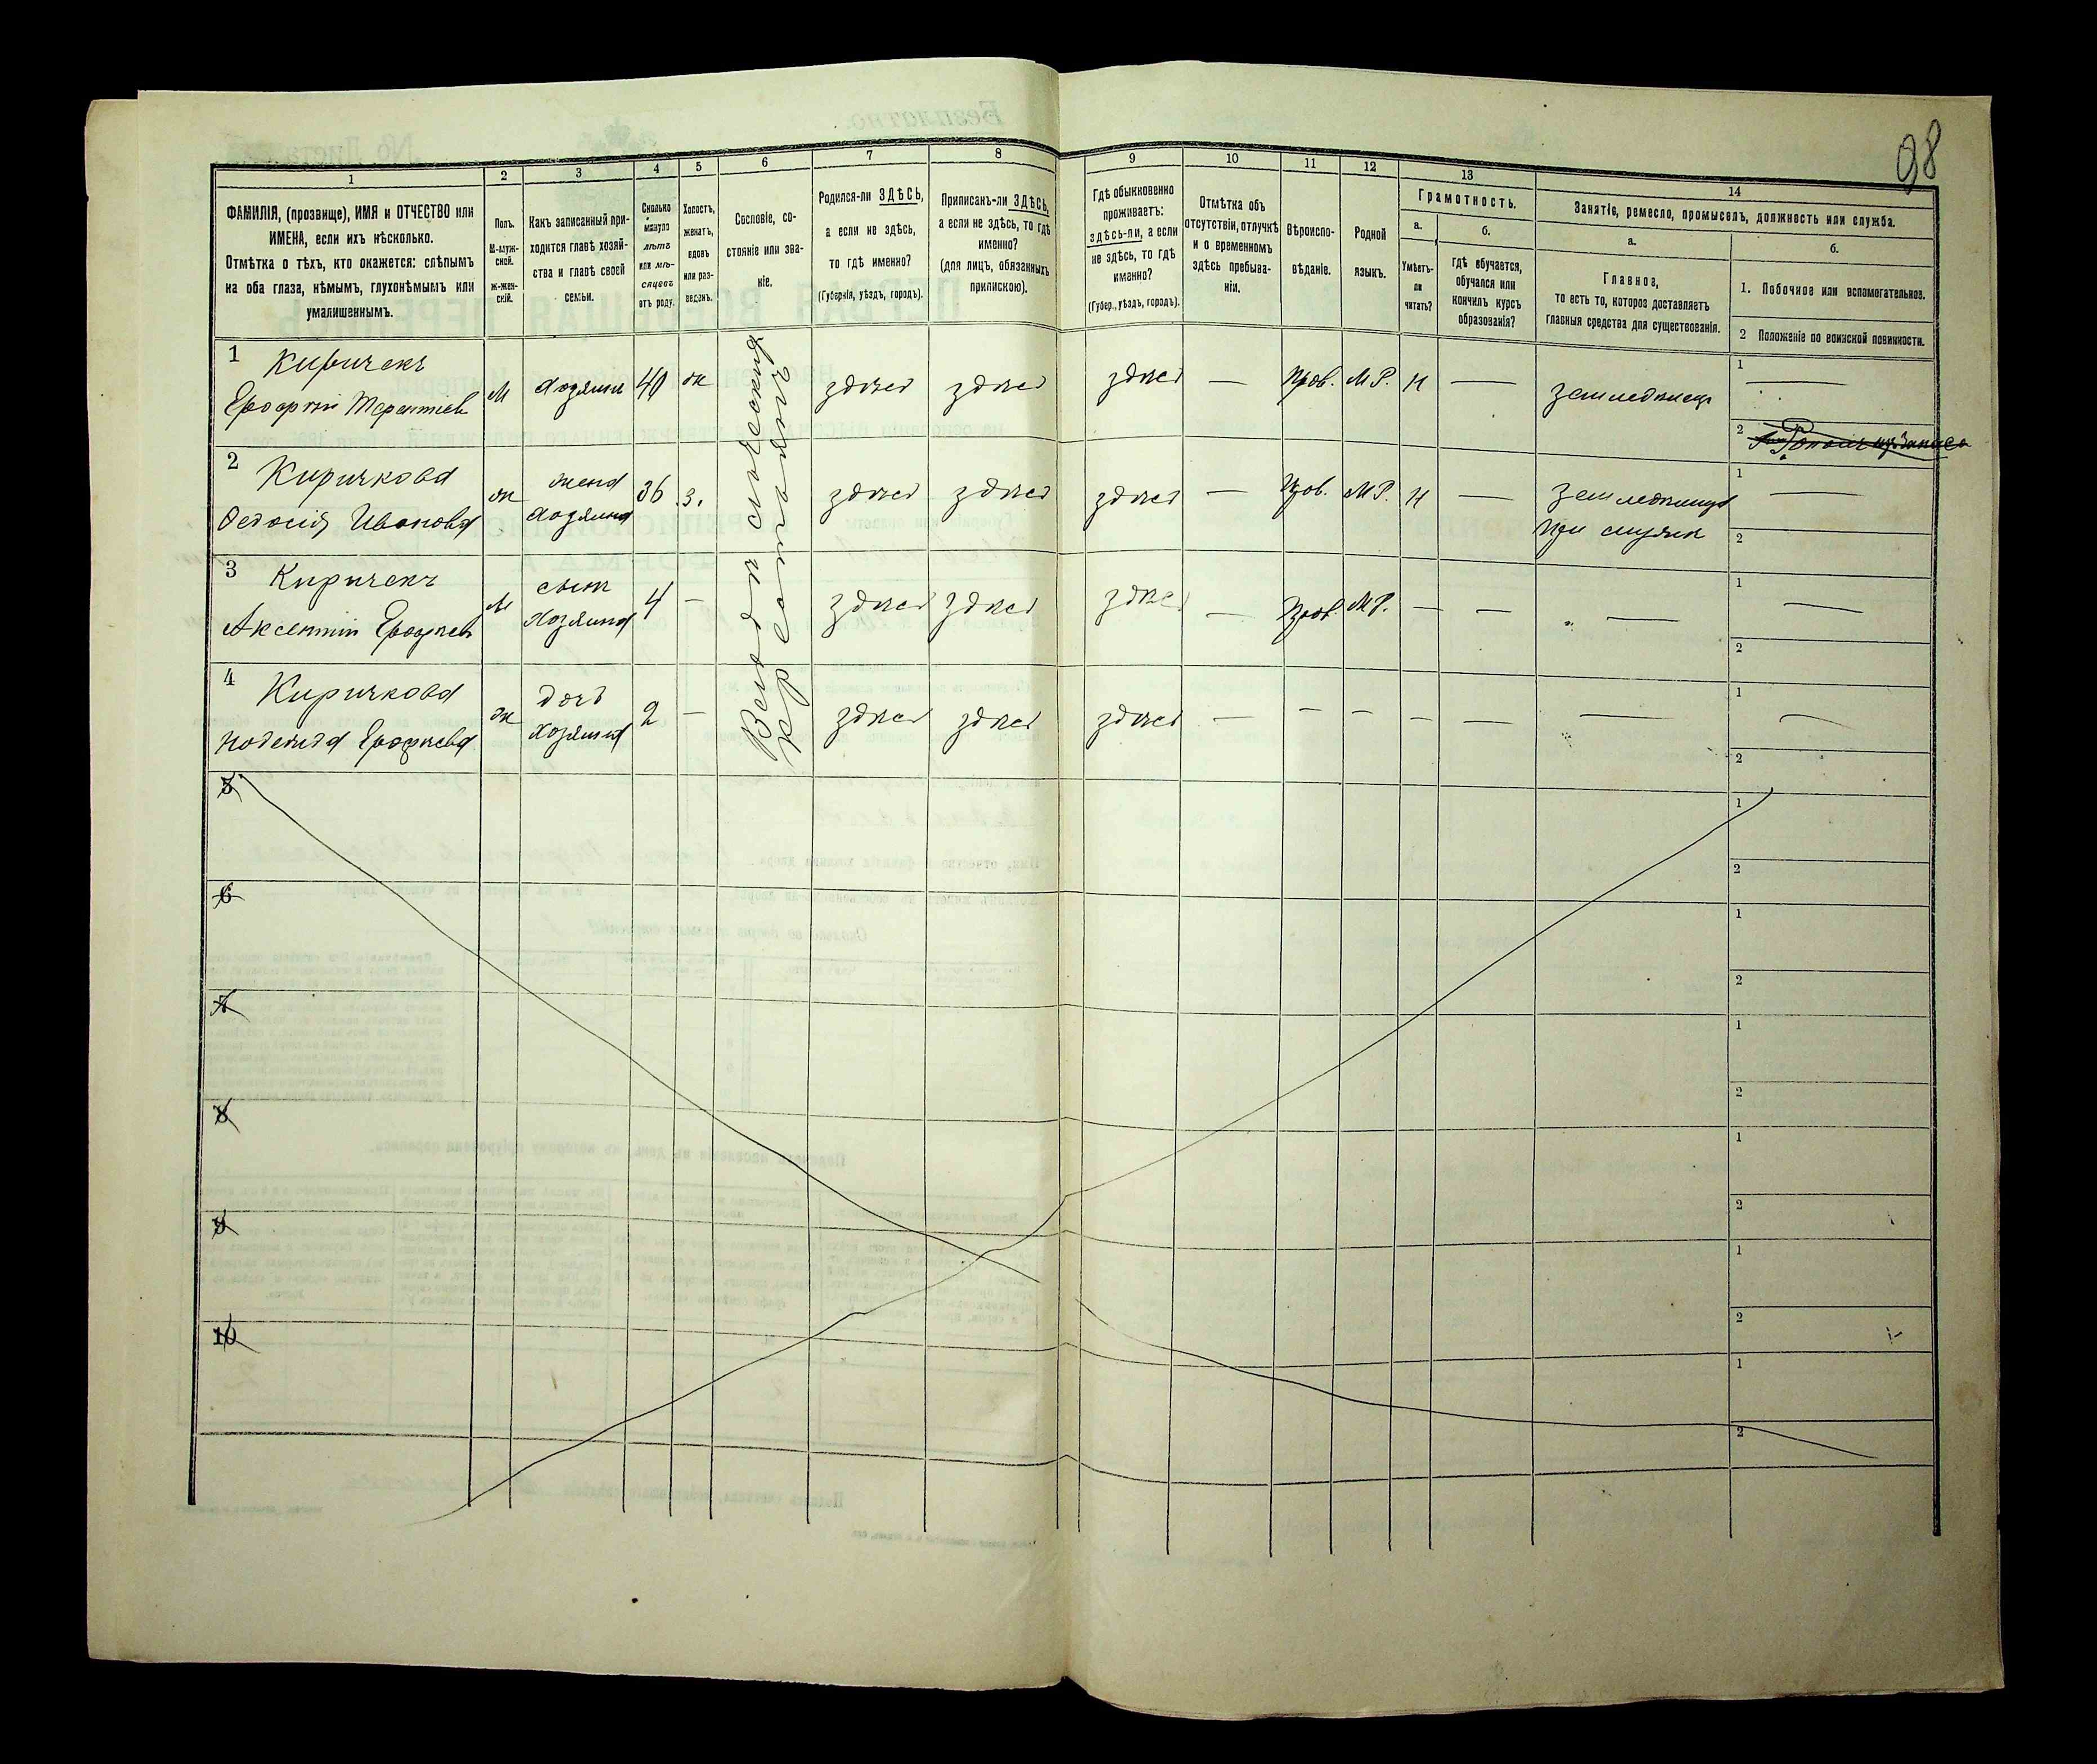 98
1 2 3 4 5 6 7 8 9 10 11 12 13 14
ФАМИЛІЯ, (прозвище), ИМЯ и ОТЧЕСТВО или
ИМЕНА, если ихъ нѣсколько.
Отмѣтка о тѣхъ, кто окажется: слѣпымъ
на оба глаза, нѣмымъ, глухонѣмымъ или
умалишеннымъ.
Полъ.
М-муж-
ской.
ж-жен-
скій.
Какъ записанный при-
ходится главѣ хозяй-
ства и главѣ своей
семьи.
Сколько
минуло
лѣтъ
или мѣ-
сяцевъ
отъ роду.
Холостъ,
женатъ,
вдовъ
или раз-
веденъ.
Сословіе, со-
стояніе или зва-
ніе.
Родился-ли ЗДѢСЬ,
а если не здѣсь,
то гдѣ именно?
(Губернія, уѣздъ, городъ).
Приписанъ-ли ЗДѢСЬ,
а если не здѣсь, то гдѣ
именно?
(для лицъ, обязанныхъ
припискою).
Гдѣ обыкновенно
проживаетъ:
здѣсь-ли, а если
не здѣсь, то гдѣ
именно?
(Губер., уѣздъ, городъ).
Отмѣтка объ
отсутствіи, отлучкѣ
и о временномъ
здѣсь пребыва-
ніи.
Вѣроиспо-
вѣданіе.
Родной
языкъ.
Грамотность.
а.
Умѣетъ-
ли
читать?
б.
гдѣ обучается,
обучался или
кончилъ курсъ
образованія?
Занятіе, ремесло, промыселъ, должность или служба.
а.
Главное,
то есть то, которое доставляетъ
главныя средства для существованія.
б.
1. Побочное или вспомогательное.
2 Положеніе по воинской повинности.
1 Киричекъ
Ерофтій Терентіев
М
хозяин
40
ж
здѣсь здѣсь здѣсь — Прав. М Р. Н —
землѣделец
1 —
2
2 Киричкова
Федосія Иванова
ж
жена
хозяина
36
з.
здѣсь здѣсь здѣсь — Прав. М Р. Н —
землѣделиц
при мужѣ
1 —
2
3 Киричекъ
Аксентій Ерофѣев
М
сын
хозяина
4
—
здѣсь здѣсь здѣсь — Прав. М Р. — — —
1 —
2
4 Киричкова
Надежда Ерофѣева
ж
дочь
хозяина
2
—
здѣсь здѣсь здѣсь — — — — — —
1 —
2
5
1
2
6
1
2
7
1
2
8
1
2
9
1
2
10
1
2